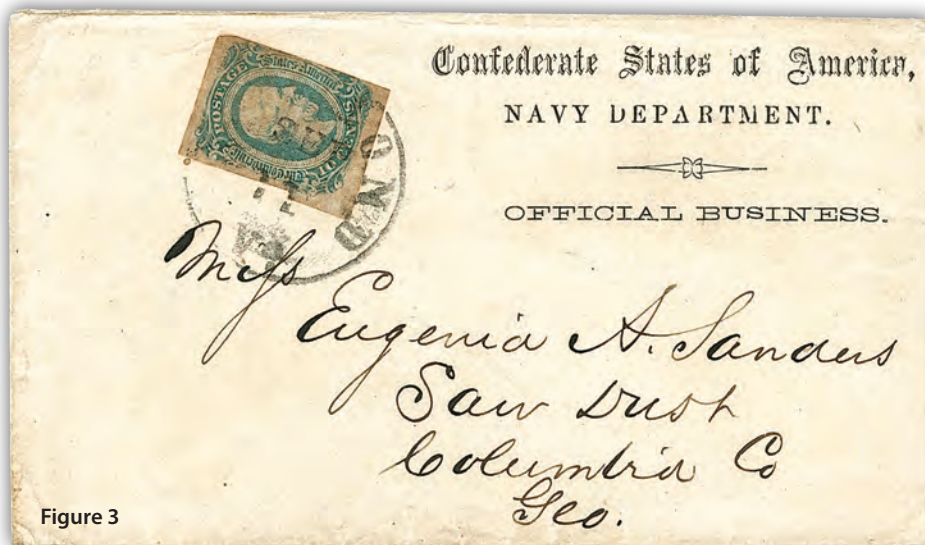 Confederate States of America,
NAVY DEPARTMENT.
OFFICIAL BUSINESS.
POSTAGE
States America
CENTS
Miss
Eugenia A. Sanders
Saw Dust
Columbia Co
Geo.
Figure 3